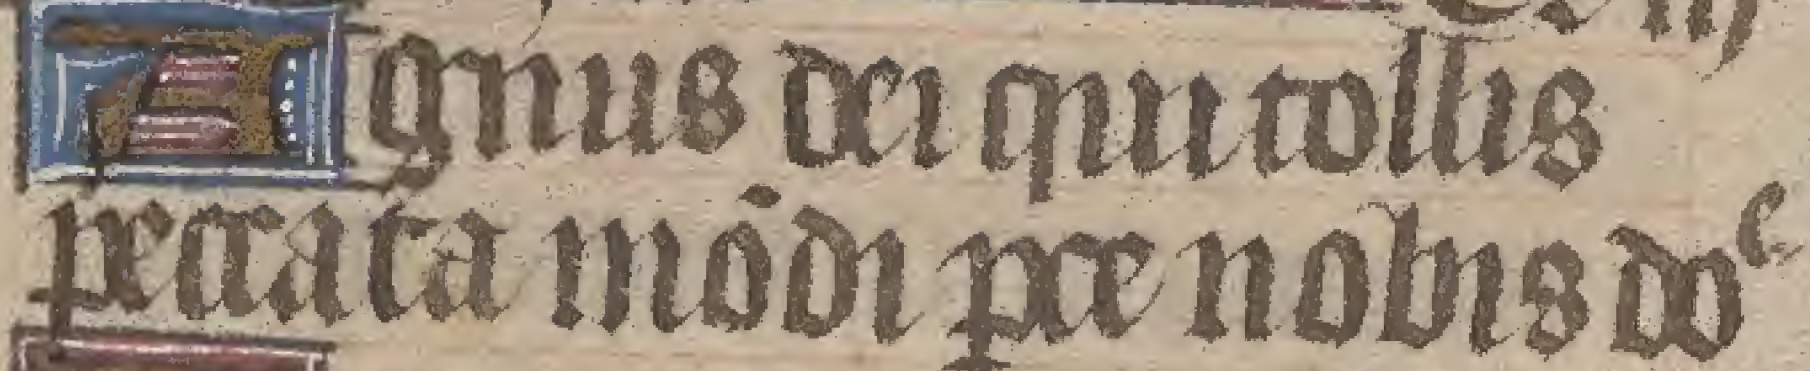 Agnus dei qui tollis
peccata mōdi ꝑce nobis doᵉ